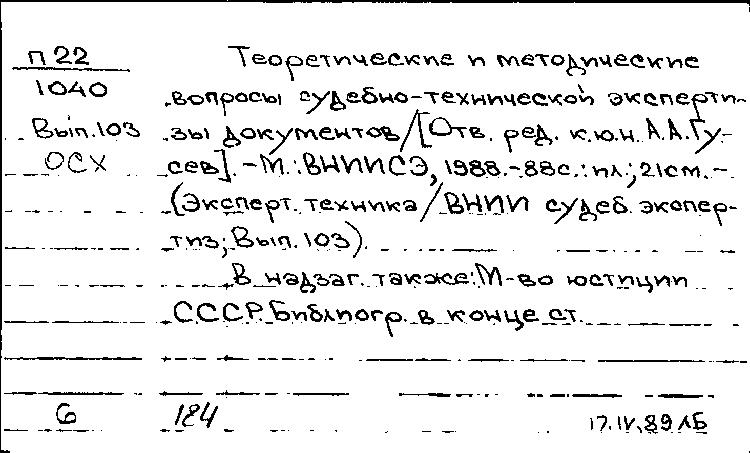 П 22 Теоретические и методические
1040 вопросы судебно-технической эксперти-
Вып. 103 зы документов/[Отв. ред. к.ю.н. А.А. Гу-
ОСХ сев]. – М.: ВНИИСЭ, 1988. – 88с.: ил.; 21см. –
(Эксперт. техника/ВНИИ судеб. экспер-
тиз; Вып. 103).
В надзаг. также: М-во юстиции
СССР. Библиогр. в конце ст.
6 184 17.IV.89 ЛБ